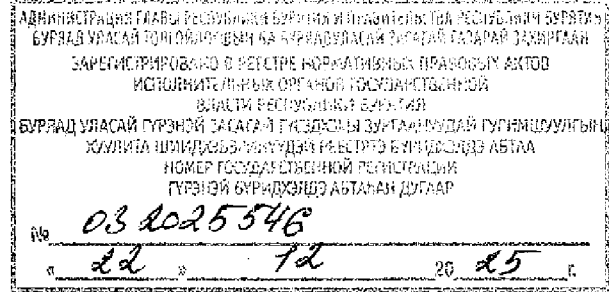 АДМИНИСТРАЦИЯ ГЛАВЫ РЕСПУБЛИКИ БУРЯТИЯ И ПРАВИТЕЛЬСТВА РЕСПУБЛИКИ БУРЯТИЯ
БУРЯАД УЛАСАЙ БА БУРЯАД УЛАСАЙ ЗАСАГАЙ ГАЗАРАЙ ЗАХИРГААН
ЗАРЕГИСТРИРОВАНО В РЕЕСТРЕ НОРМАТИВНЫХ ПРАВОВЫХ АКТОВ
ИСПОЛНИТЕЛЬНЫХ ОРГАНОВ ГОСУДАРСТВЕННОЙ
ВЛАСТИ РЕСПУБЛИКИ БУРЯТИЯ
БУРЯАД УЛАСАЙ ГҮРЭНЭЙ ЗАСАГАЙ
РЕЕСТРТЭ БҮРИДХЭЛДЭ АБТАА
НОМЕР ГОСУДАРСТВЕННОЙ РЕГИСТРАЦИИ
ГҮРЭНЭЙ БҮРИДХЭЛДЭ АБТАҺАН ДУГААР
№ 032025546
« 22 » 12 20 25 г.